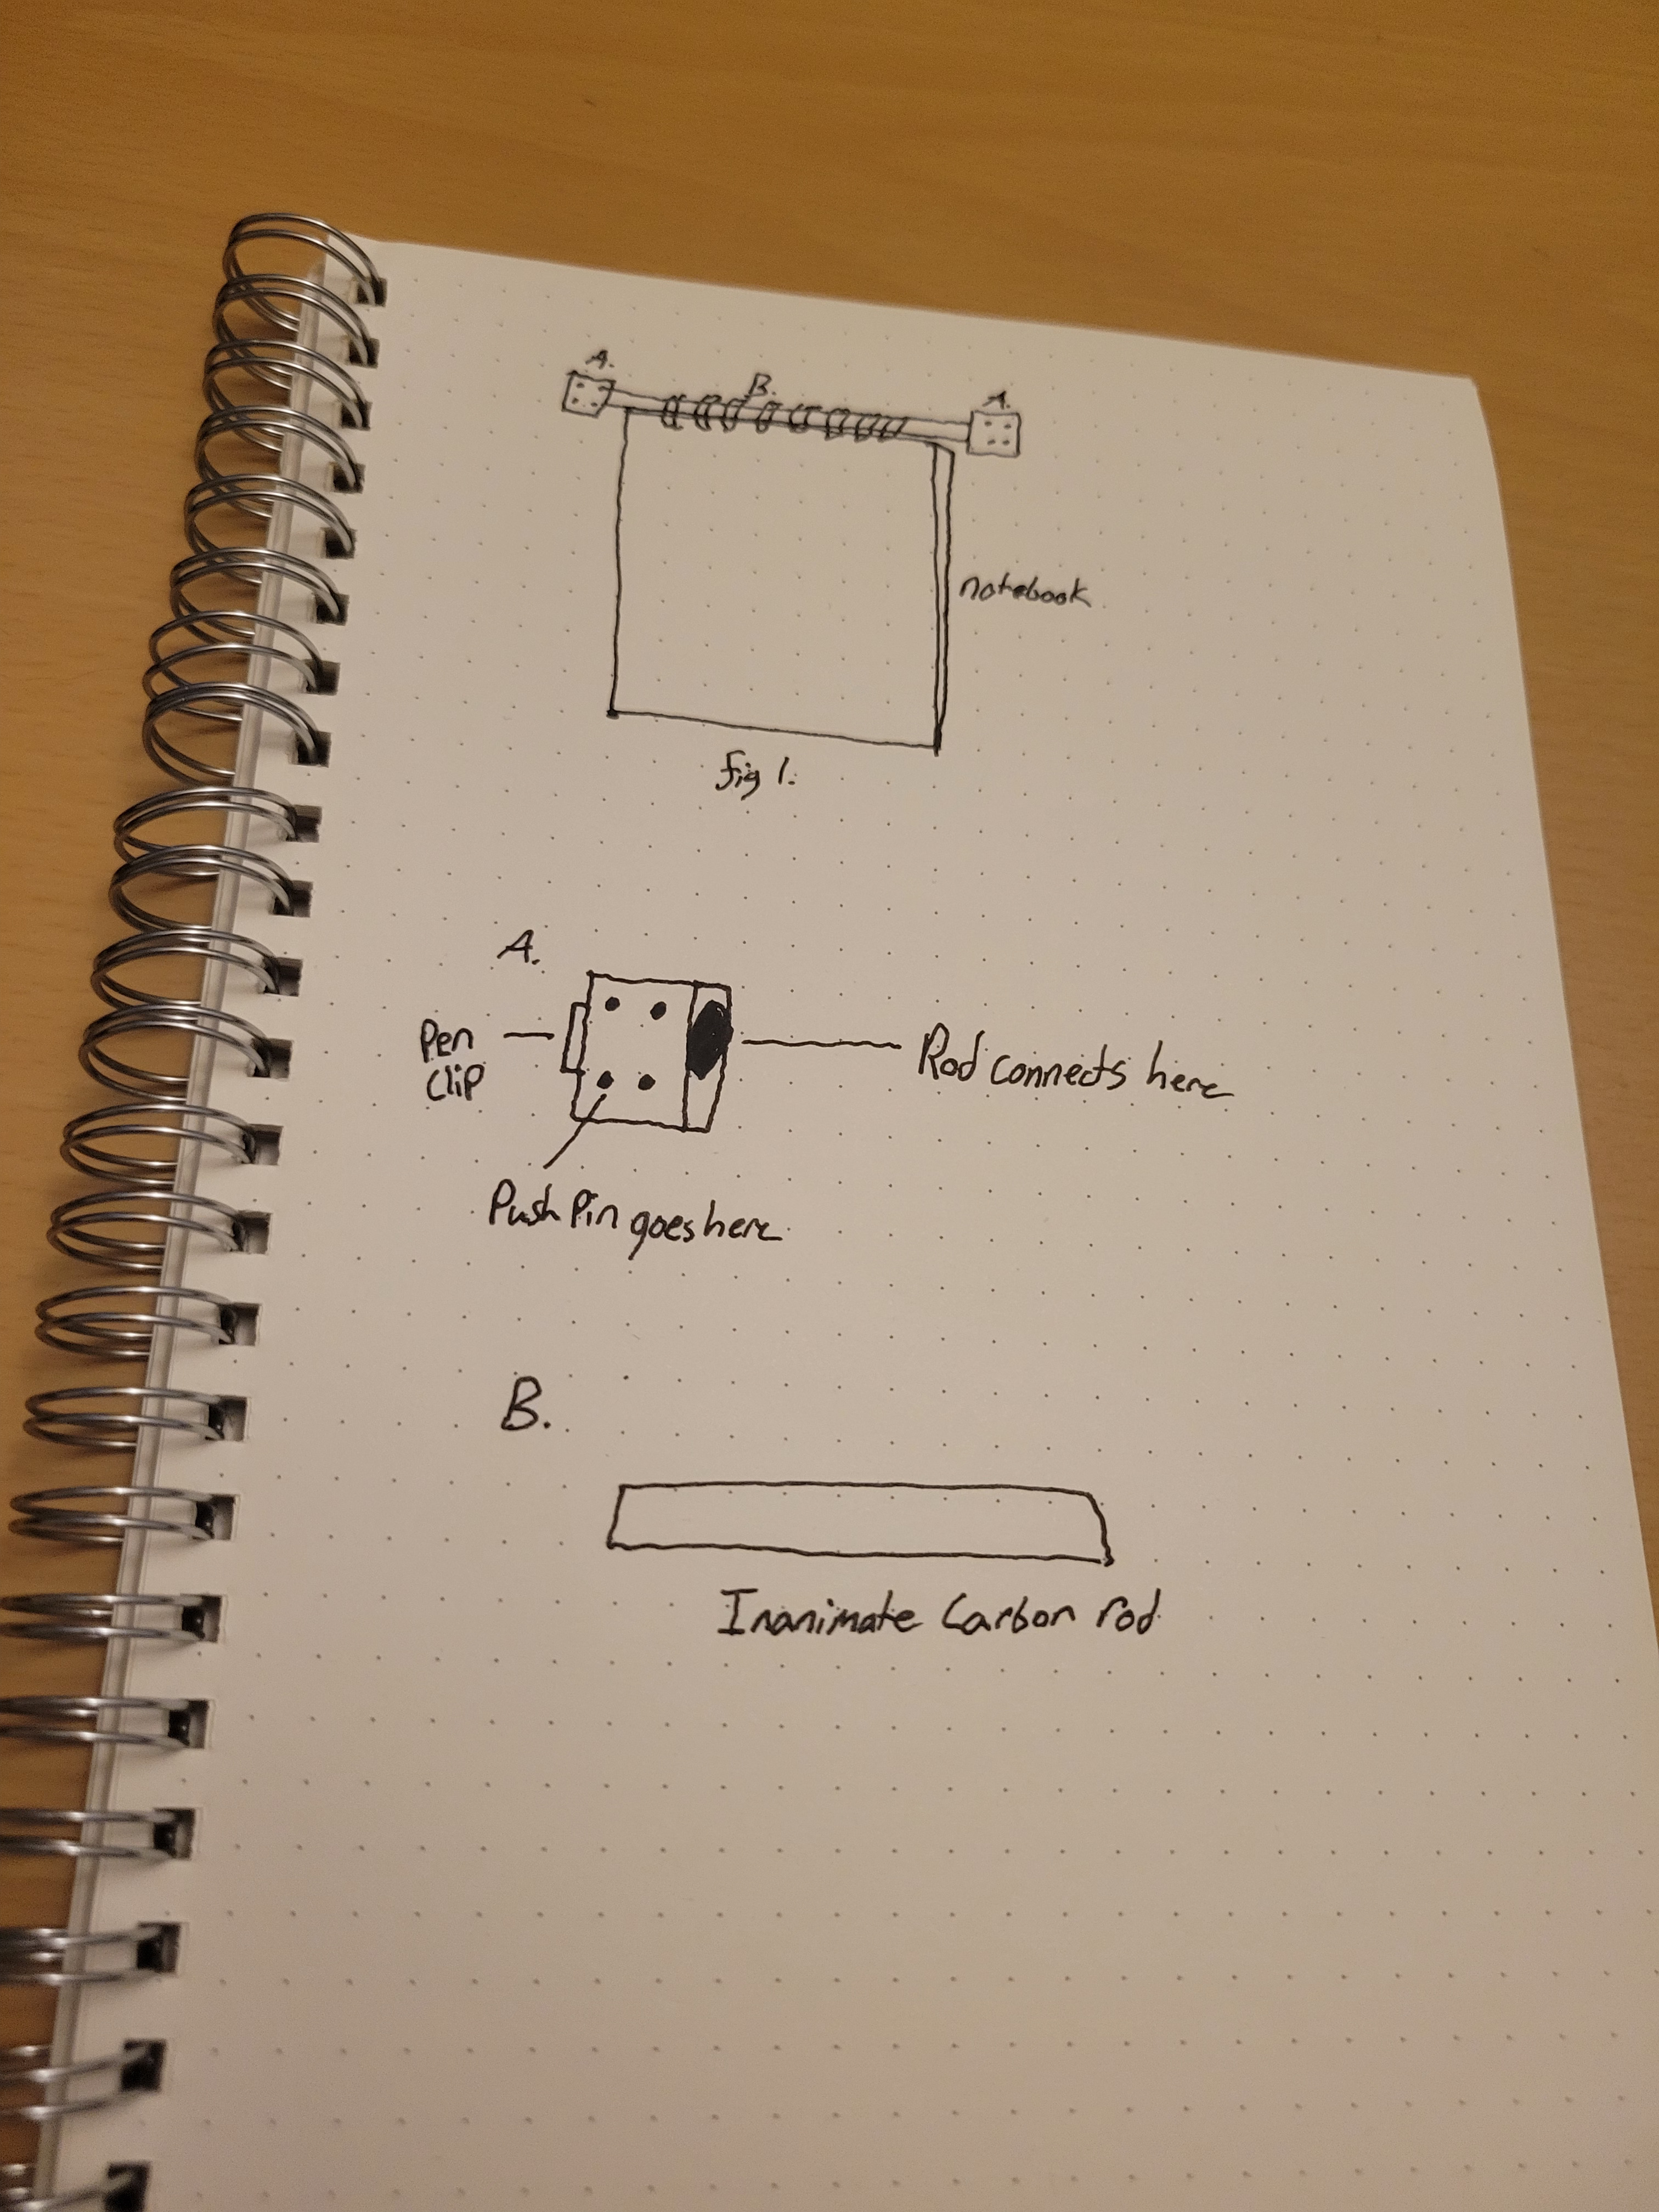 A.
B.
A.
notebook
fig 1.
A.
Pen
Clip
Rod connects here
Push Pin goes here
B.
Inanimate Carbon rod